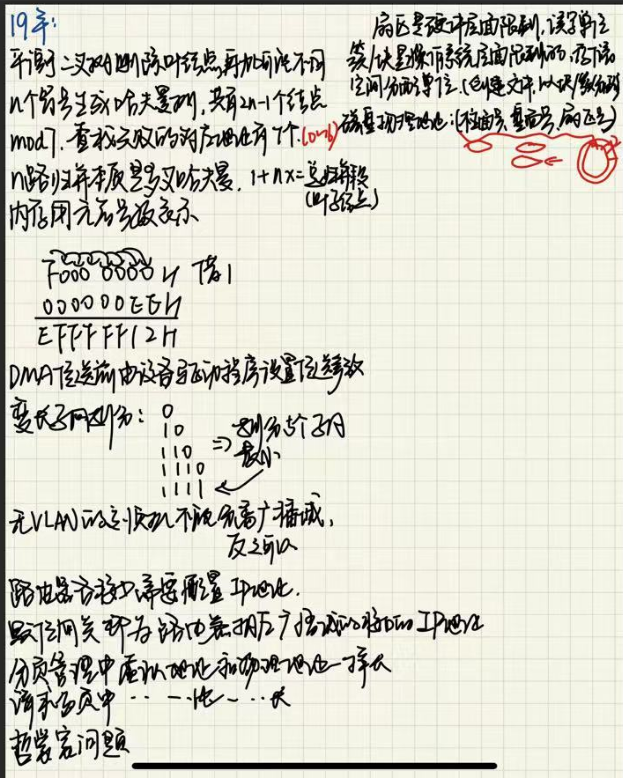 19年:
平衡二叉树删除叶结点再加可能不同
n个符号生成哈夫曼树,共有2n-1个结点
mod7,查找失败的对应地址有7个.(0~6)
n路归并本质是多叉哈夫曼.1+nx=总归并段
(叶子结点)
内存用无符号数表示
F000 0000H 借1
000000EEH
EFFFFF12H
DMA传送前由设备驱动程序设置传送参数
变长子网划分:
0
10
110
1110
1111
⇒划分5个子网
最小
无VLAN的交换机不能分离广播域,
反之可以
路由器各接口需要配置IP地址.
默认网关即为路由器相应广播域的接口的IP地址
分页管理中虚拟地址和物理地址一样大
请求分页中‥ 一 比 ~ ‥ 大
哲学家问题
扇区是硬件层面限制,读写单位
簇/块是操作系统层面限制的,存储
空间分配单位.(创建文件,以块/簇分配)
磁盘物理地址:(柱面号,盘面号,扇区号)